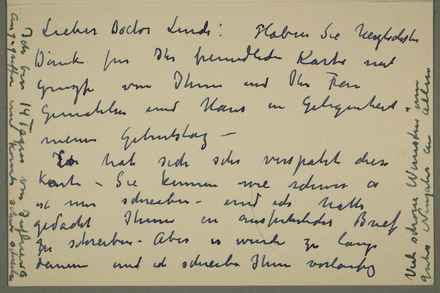 Lieber Doctor Lindi! Haben Sie herzlichsten
Dank für Ihre freundliche Karte mit
von Ihnen und Ihr Frau
Gemahlin und Hans in Gelegenheit
meines Geburtstag –
Es hat sich sehr verspätet diese
Karte – Sie kennen wie schwer es
ist mir schreiben – und ich hatte
gedacht Ihnen in ausführlicher Brief
zu schreiben – Aber es würde zu lange
dauern und ich schreibe Ihnen vorläufig
Ich bin 14 Tagen von
und
Viele schöne Wünschen zum
Neujahr an allen